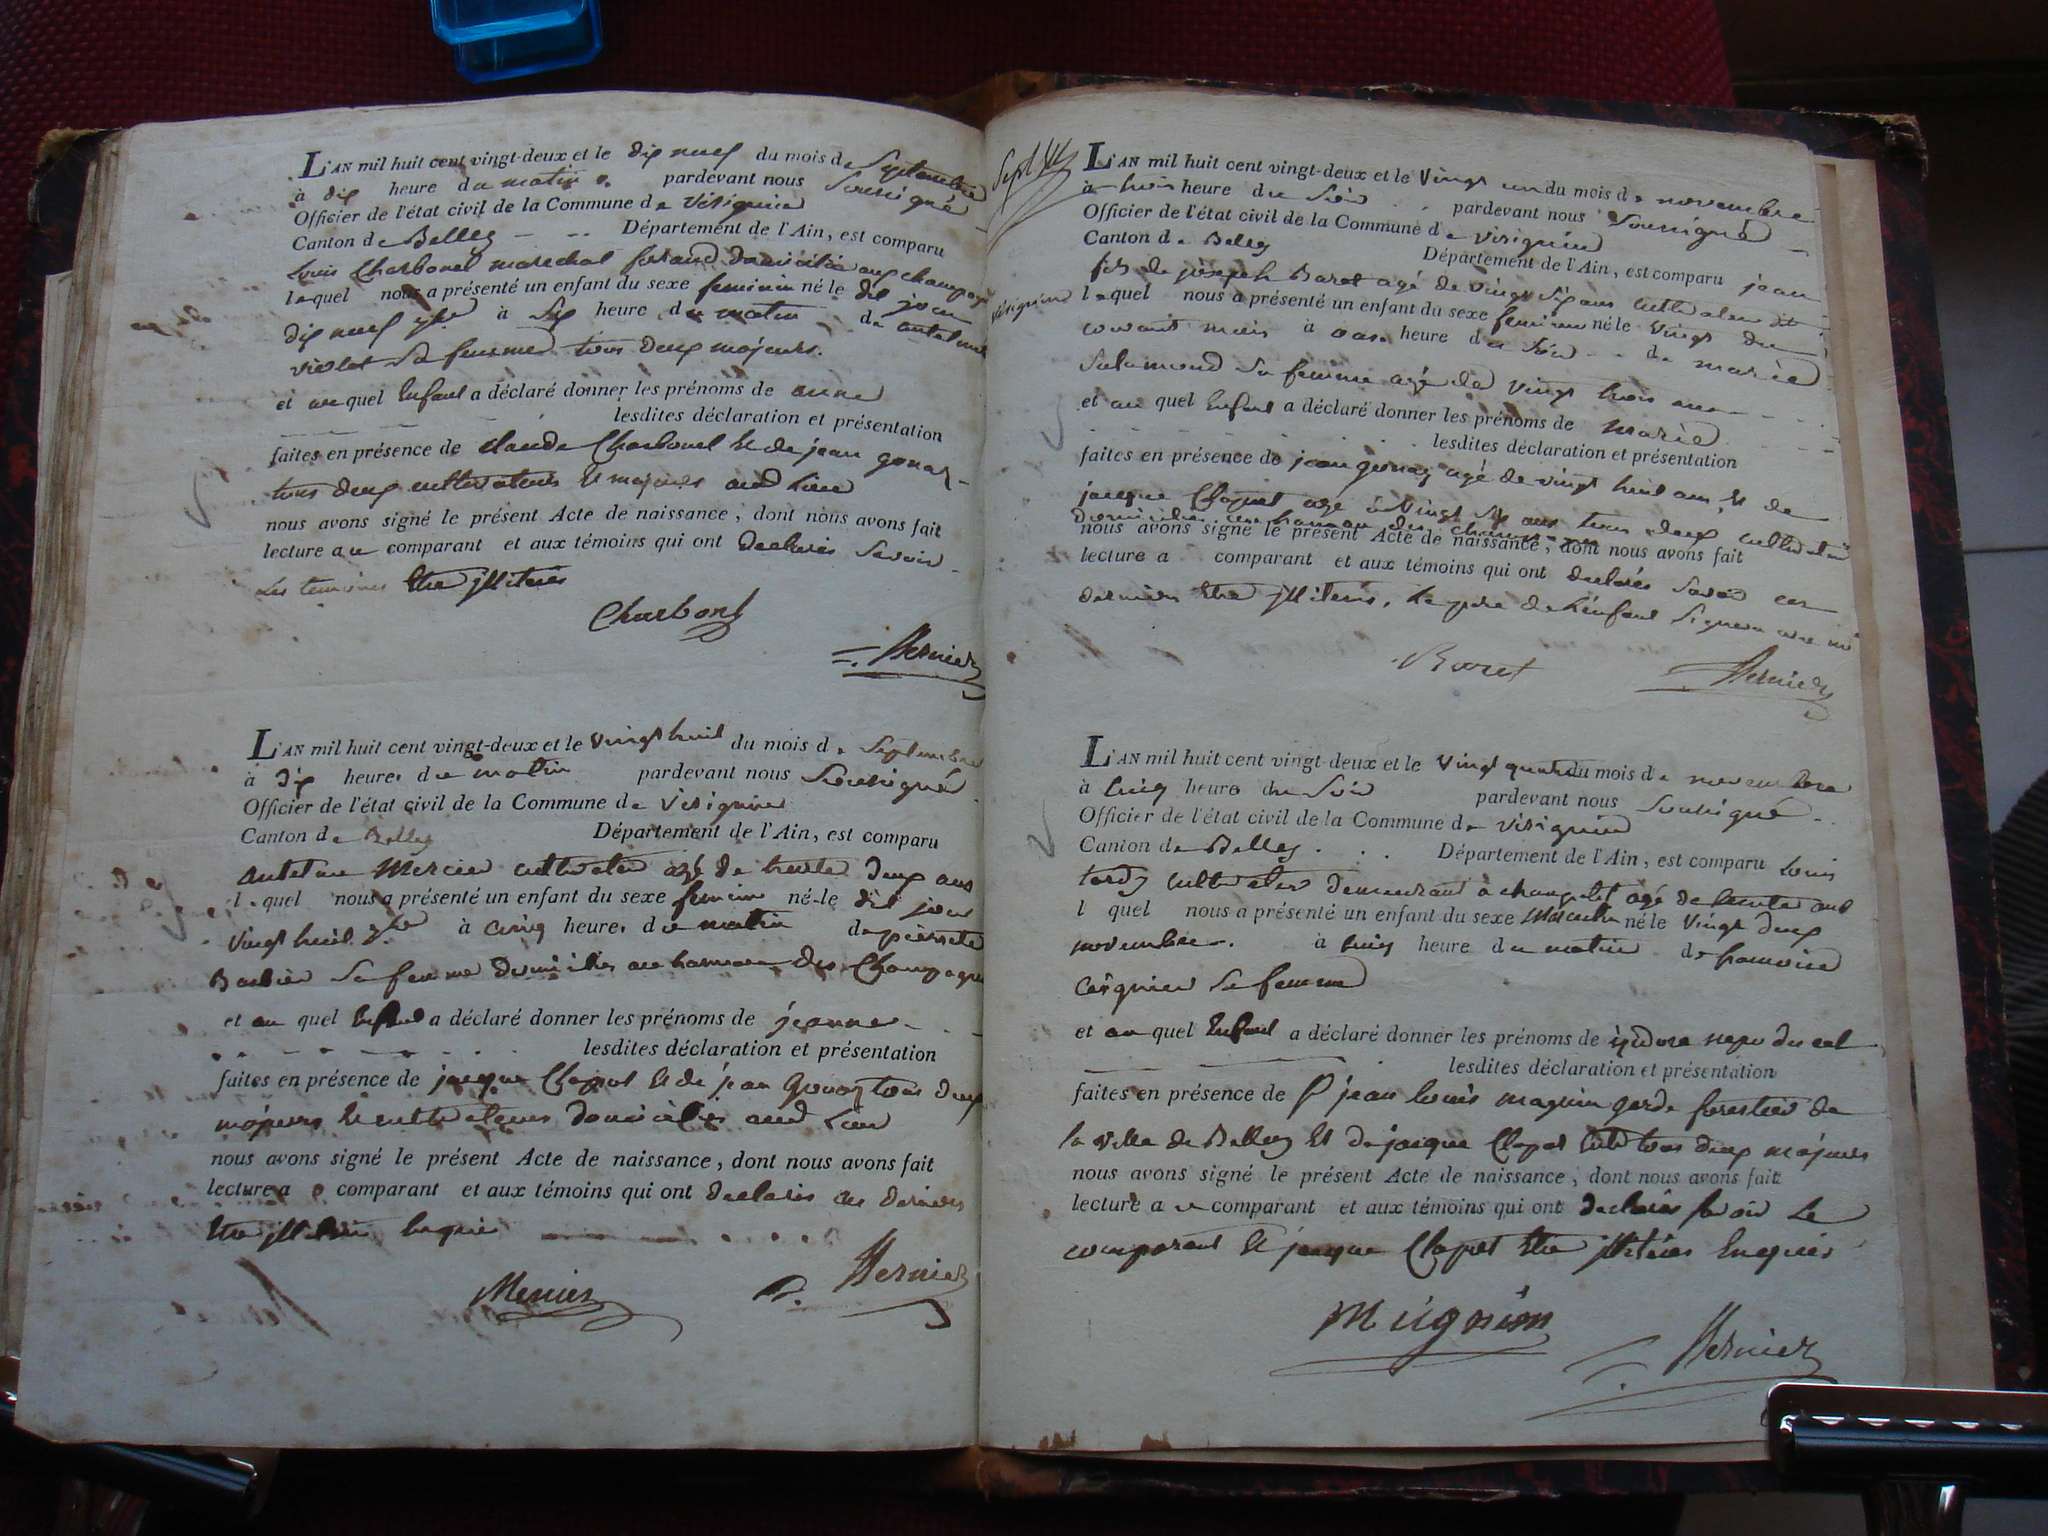 L'AN mil huit cent vingt-deux et le dix neuf du mois de Septembre
à dix heure du matin pardevant nous Soussigné
Officier de l'état civil de la Commune de virignin
Canton de Belley Département de l'Ain, est comparu
Louis Charbonel marechal ferand domicilié aux champagne
lequel nous a présenté un enfant du sexe feminin né le dit jour
dix neuf 7bre à Six heure du matin de antelmet
violet Sa femme tous deux majeurs.
et au quel Enfant a déclaré donner les prénoms de anne
lesdites déclaration et présentation
faites en présence de claude Charbonel et de jean gonaz
tous deux cultivateurs et majeurs aud Lieu
nous avons signé le présent Acte de naissance, dont nous avons fait
lecture au comparant et aux témoins qui ont declarés Savoir
Les temoins Etre illiterés
Charbonel
Mernier
L'AN mil huit cent vingt-deux et le vingt huit du mois de Septembre
à Dix heures du matin pardevant nous Soussigné
Officier de l'état civil de la Commune de virignin
Canton de Belley Département de l'Ain, est comparu
antelme Mercier cultivateur agé de trente deux ans
lequel nous a présenté un enfant du sexe feminin né le dit jour
vingt huit 7bre à cinq heures du matin de pierrete
Barbier Sa femme Domiciliés au hameau des Champagne
et au quel Enfant a déclaré donner les prénoms de jeanne
lesdites déclaration et présentation
faites en présence de jacque Clapet et de jean Gonaz tous deux
majeurs et cultivateurs domiciliés aud Lieu
nous avons signé le présent Acte de naissance, dont nous avons fait
lecture a comparant et aux témoins qui ont declarés ces derniers
Etre illiterés Enquis
Mercier
Mernier
L'AN mil huit cent vingt-deux et le vingt un du mois de novembre
à trois heure du Soir pardevant nous Soussigné
Officier de l'état civil de la Commune de virignin
Canton de Belley Département de l'Ain, est comparu jean
fils de joseph Baret agé de vingt Six ans cultivateur dt
virignin lequel nous a présenté un enfant du sexe feminin né le vingt du
courant mois à onze heure du Soir de marie
Salamond Sa femme agé de vingt trois ans
et au quel Enfant a déclaré donner les prénoms de marie
lesdites déclaration et présentation
faites en présence de jean gonaz agé de vingt huit ans, et de
jacque Clapet agé de vingt Six ans tous deux cultivateurs
Domiciliés au hameau des champagne
nous avons signé le présent Acte de naissance, dont nous avons fait
lecture a comparant et aux témoins qui ont declarés Savoir ces
derniers Etre illiterés, Le pere de l'enfant Signera avec nous
Baret
Mernier
L'AN mil huit cent vingt-deux et le vingt quatre du mois de novembre
à cinq heure du Soir pardevant nous Soussigné
Officier de l'état civil de la Commune de virignin
Canton de Belley Département de l'Ain, est comparu Louis
tardy cultivateur demeurant à champtel agé de trente ans
lequel nous a présenté un enfant du sexe Masculin né le vingt deux
novembre à cinq heure du matin de francoise
Carquier Sa femme
et au quel Enfant a déclaré donner les prénoms de
lesdites déclaration et présentation
faites en présence de jean Louis magnin garde forestier de
la ville de Belley et de jacque Clapet Cult tous deux majeurs
nous avons signé le présent Acte de naissance, dont nous avons fait
lecture au comparant et aux témoins qui ont declarés Savoir Le
comparant et jacque Clapet Etre illiterés Enquis
Mugnier
Mernier